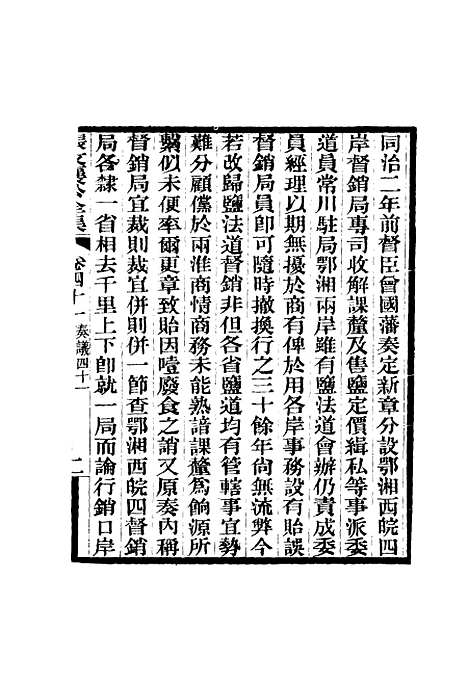 同治二年前督臣曾國藩奏定新章分設鄂湘西皖四
岸督銷局專司收解課釐及售鹽定價緝私等事派委
道員常川駐局鄂湘兩岸雖有鹽法道會辦仍責成委
員經理以期無擾於商有俾於用各岸事務設有貽誤
督銷局員卽可隨時撤換行之三十餘年尙無流弊今
若改歸鹽法道督銷非但各省鹽道均有管轄事宜勢
難分顧儻於兩淮商情商務未能熟諳課釐爲餉源所
繫似未便率爾更章致貽因噎廢食之誚又原奏內稱
督銷局宜裁則裁宜併則併一節查鄂湘西皖四督銷
局各隸一省相去千里上下卽就一局而論行銷口岸
卷四十一奏議四十一